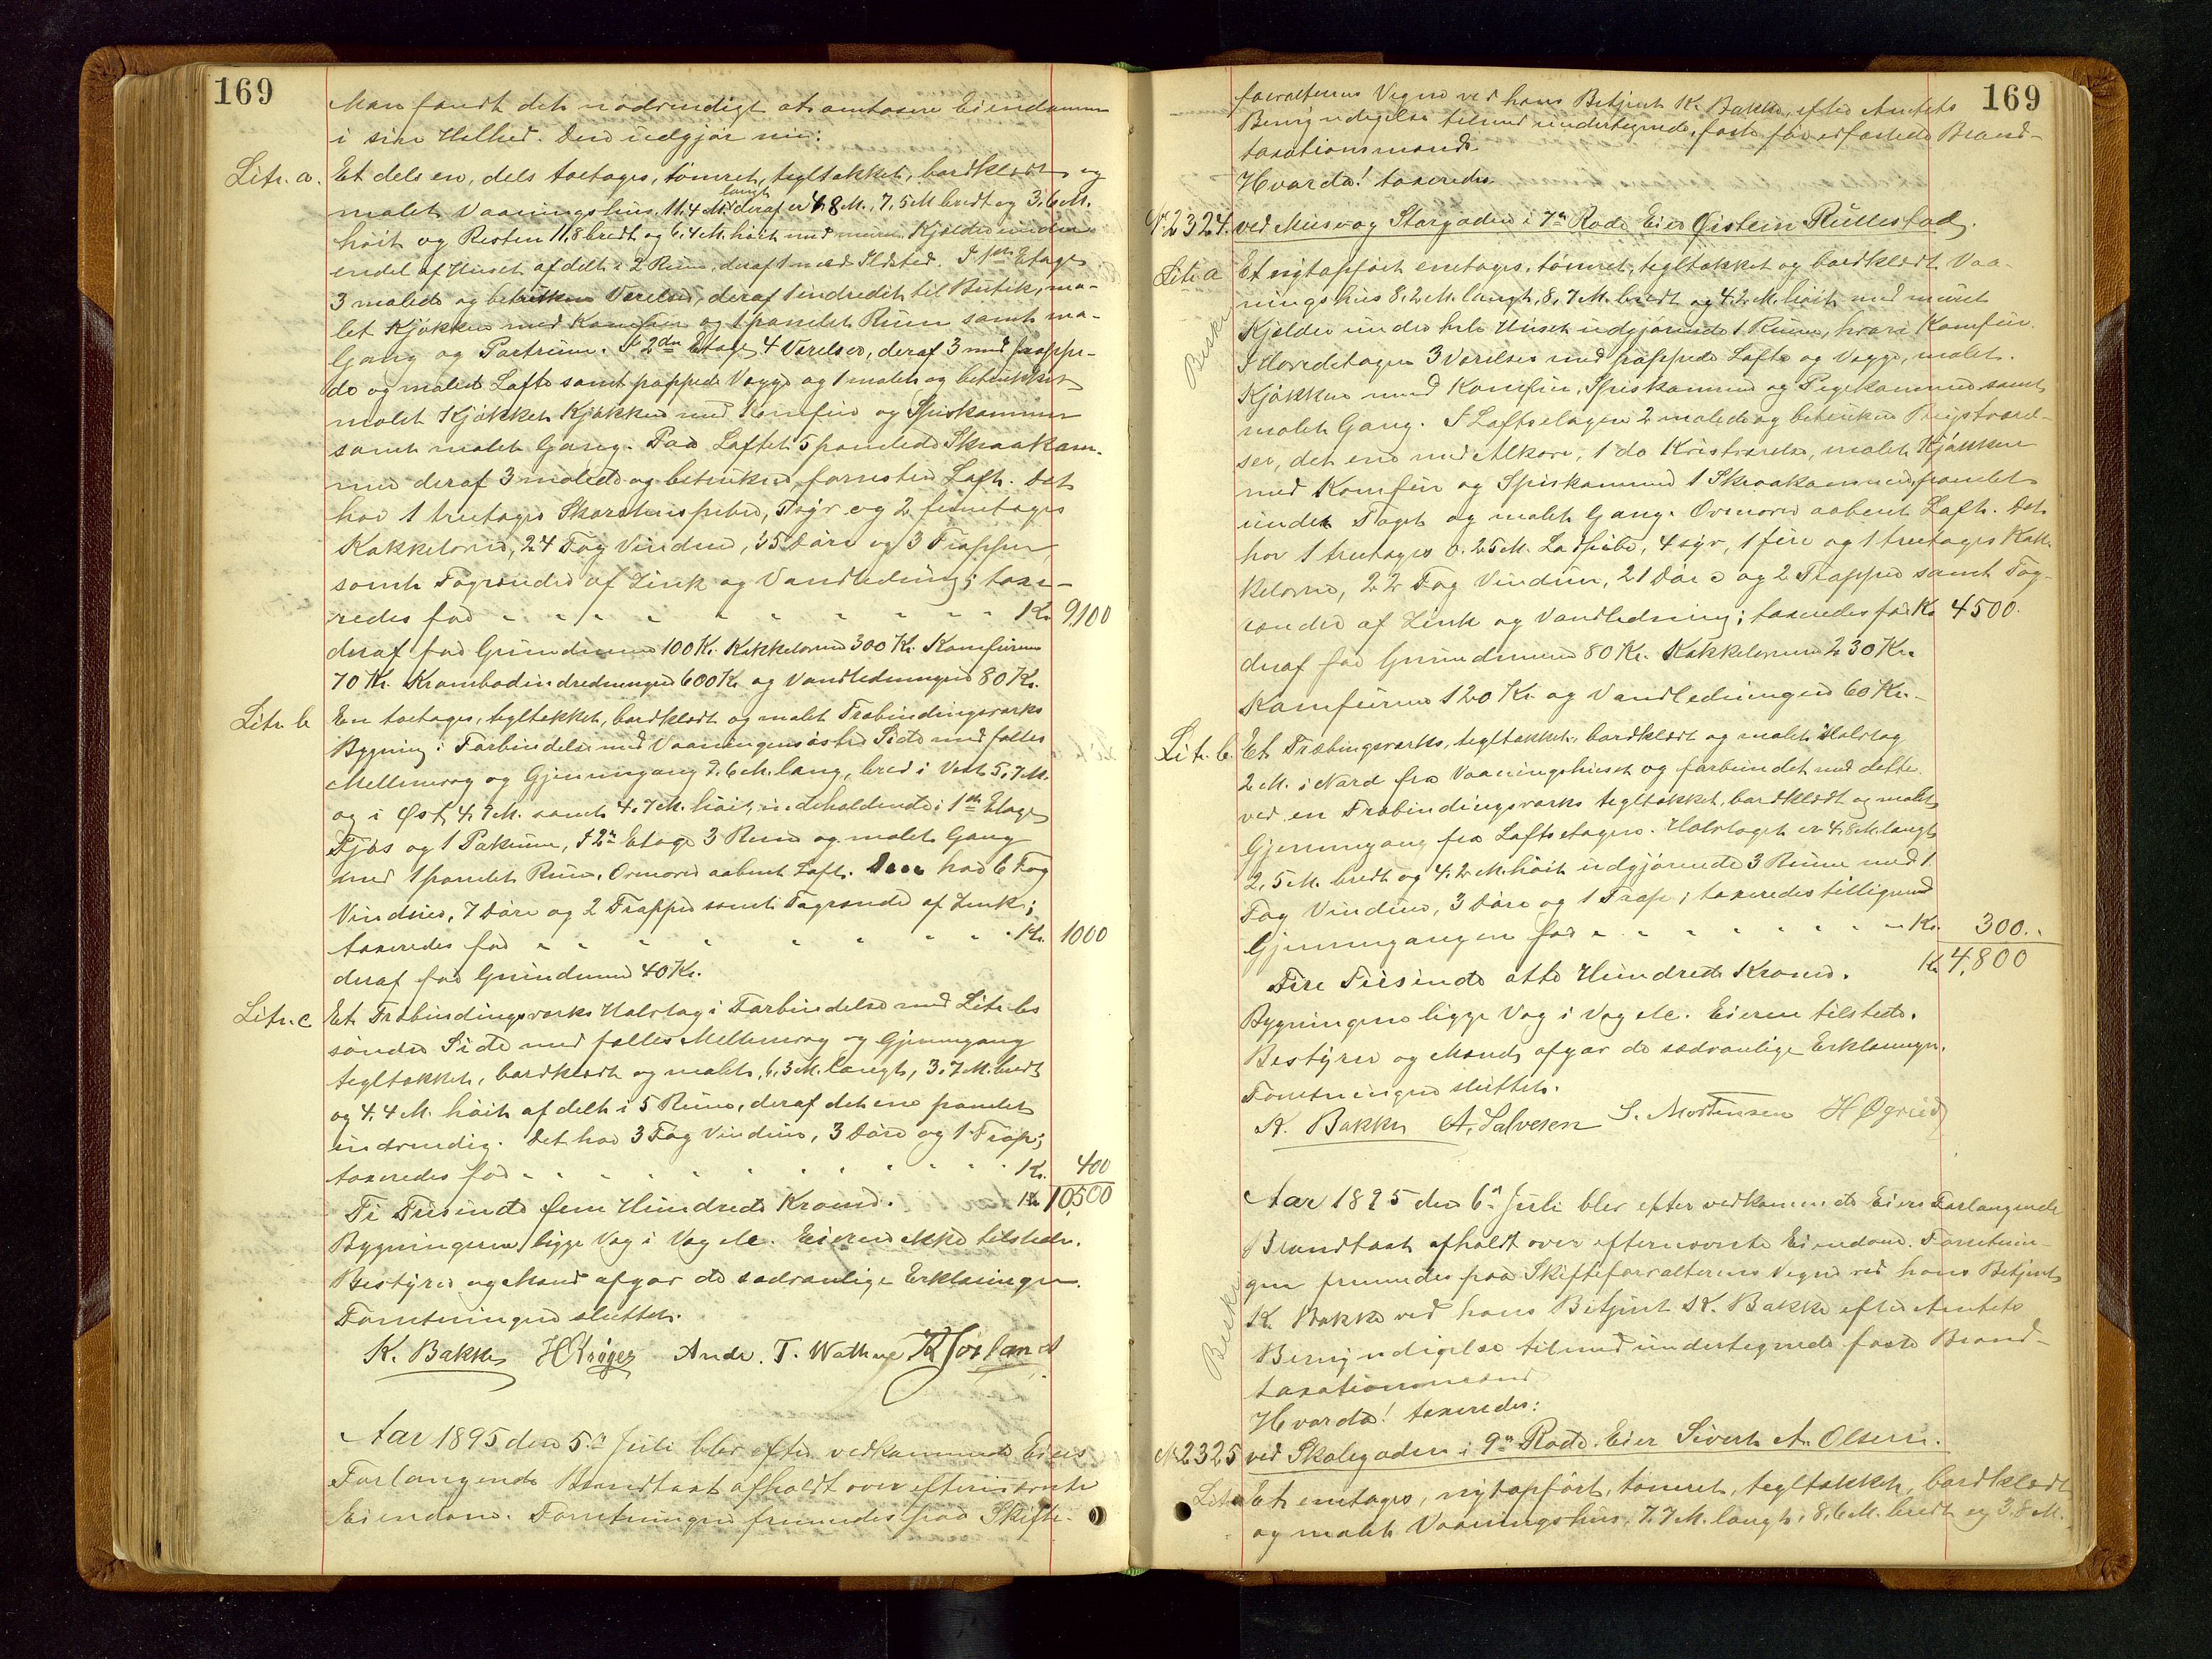 169
Man fandt det nødvendigt at omtaxere Eiendommen
i sin Helhed. Den udgjør nu:
Litr. a. Et dels en, dels toetages, tømret, tegltækket, bordklædt og
malet Vaaningshus, 11,4 M. langt deraf er 4,8 M., 7,5 M bredt og 3,6 M.
høit og Resten 11,8 bredt og 6,4 M. høit med muret Kjelder under
endel af Huset afdelt i 2 Rum, deraf 1 med Ildsted. I 1ste Etage
3 malede og betrukne Værelser, deraf 1 indredet til Butik, ma-
let Kjøkken med Komfur og 1 panelet Rum samt ma-
Gang og Portrum. I 2den Etage 4 Værelser, deraf 3 med pappe-
de og malede Lofte samt pappede Vægge og 1 malet og betrukket
malet Kjøkket Kjøkken med Komfur og Spiskammer
samt malet Gang. Paa Loftet 5 panelede Skraakam-
mer deraf 3 malede og betrukne, forresten Loft. Det
har 1 treetages Skorstenspibe, 7 syv og 2 femetages
Kakkelovne, 24 Fag Vinduer, 35 Døre og 3 Trapper
samt Tagrender af Zink og Vandledning; taxe-
redes for " " " " " " " " " Kr. 9100
deraf for Grundmuren 100 Kr. Kakkelovne 300 Kr. Komfurerne
70 Kr. Krambodindredningen 600 Kr og Vandledningen 80 Kr.
Litr. b En toetages, tegltækket, bordklædt og malet Træbindingsværks
Bygning i Forbindelse med Vaaningens østre Side med fælles
Mellemvæg og Gjennemgang 7,6 M. lang, bred i Vest 5,7 M.
og i Øst 4,7 M. samt 4,7 M. høit, indeholdende i 1ste Etage
Fjøs og 1 Pakrum, I 2n Etage 3 Rum og malet Gang
med 1 panelet Rum. Ovenover aabent Loft. Den har 6 Fag
Vinduer, 7 Døre og 2 Trapper samt Tagrender af Zink;
taxeredes for " " " " " " " " Kr. 1000
deraf for Grundmur 40 Kr.
Litr. c Et Træbindingsværks Halvtag i Forbindelse med Litr. bs
søndre Side med fælles Mellemvæg og Gjennemgang
tegltækket, bordklædt og malet, 6,3 M. langt, 3,7 M. bredt
og 4,4 M. høit afdelt i 5 Rum, deraf det ene panelet
indvendig. Det har 3 Fag Vinduer, 3 Døre og 1 Trap;
taxeredes for " " " " " " " " Kr. 400
Ti Tusinde fem Hundrede Kroner. Kr 10,500
Bygningerne ligge Væg i Væg &c. Eieren ikke tilstede.
Bestyrer og Mænd afgav de sædvanlige Erklæringer.
Forretningen sluttet.
K. Bakke H Krøger Andr. T. Wathne K Jørland
Aar 1895 den 5te Juli blev efter vedkommende Eiers
Forlangende Brandtaxt afholdt over efternævnte
Eiendom. Forretningen fremmedes paa Skifte-
169
forvalterens Vegne ved hans Betjent K. Bakke, efter Amtets
Bemyndigelse tilmed undertegnede, faste for edfæstede Brand-
taxationsmænd.
Hvorda! taxeredes
No 2324. ved Musevog Storgaden i 7de Rode, Eier Øistein Rullestad.
Litr. a Et nytopført enetages, tømret, tegltækket og bordklædt Vaa-
Beskr
ningshus 8,2 M. langt, 8,7 M. bredt og 4,2 M. høit med muret
Kjelder under hele Huset udgjørende 1 Rum, hvori Komfur.
I Hovedetagen 3 Værelser med pappede Lofte og Vægge, malet.
Kjøkken med Komfur, Spiskammer og Pigekammer samt
malet Gang. I Loftsetagen 2 malede og betrukne Værel-
ser, det ene med Alkove, 1 do Kvistværelse, malet Kjøkken
med Komfur og Spiskammer 1 Skraakammer, panelet
under Taget og malet Gang. Ovenover aabent Loft. Det
har 1 treetages 0.25 M. Ladpibe, 4 syv, 1 fire og 1 treetages Kak-
kelovne, 22 Fag Vinduer, 21 Døre og 2 Trapper samt Tag-
render af Zink og Vandledning; taxeredes for Kr 4500.
deraf for Grundmuren 80 Kr. Kakkelovnene 230 Kr.
Komfurerne 120 Kr. og Vandledningen 60 Kr.
Litr. b. Et Træbingsværks, tegltækket, bordklædt og malet Halvtag
2 M. i Nord fra Vaaningshuset og forbundet med dette
ved en Træbindingsværks tegltækket, bordklædt og malet
Gjennemgang fra Loftsetagen. Halvtaget er 4,8 M. langt
2,5 M. bredt og 4,2 M. høit udgjørende 3 Rum med 1
Fag Vinduer, 3 Døre og 1 Trap; taxeredes tilligemed
Gjennemgangen for " " " " " " " Kr. 300.
Fire Tusinde otte Hundrede Kroner. Kr 4,800
Bygningerne ligge Væg i Væg &c. Eieren tilstede.
Bestyrer og Mænd afgav de sædvanlige Erklæringer.
Forretningen sluttet.
K. Bakke A. Salvesen S. Mortensen H Øgreid
Aar 1895 den 6te Juli blev efter vedkommende Eiers Forlangende
Brandtaxt afholdt over efternævnte Eiendom. Forretnin-
gen fremmedes paa Skifteforvalterens Vegne ved hans Betjent
Beskr
K. Bakke ved hans Betjent K. Bakke efter Amtets
Bemyndigelse tilmed undertegnede faste Brand-
taxationsmænd
Hvorda! taxeredes:
No 2325 ved Skolegaden i 9de Rode. Eier Sivert A. Olsen.
Litr a Et enetages, nytopført, tømret, tegltækket, bordklædt
og malet Vaaningshus, 7,7 M. langt, 8,6 M. bredt og 3,8 M.